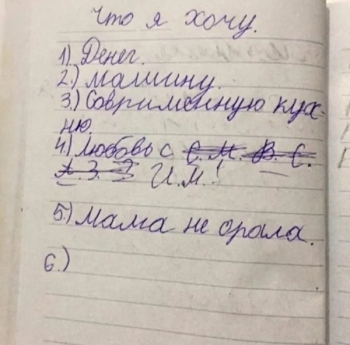 Что я хочу.
1) Денег.
2.) машину.
3.) Совrименную кух-
ню.
4.) Любовь с С. М. В. С.
А З. Э И.М!
5.) мама не орала.
6.)